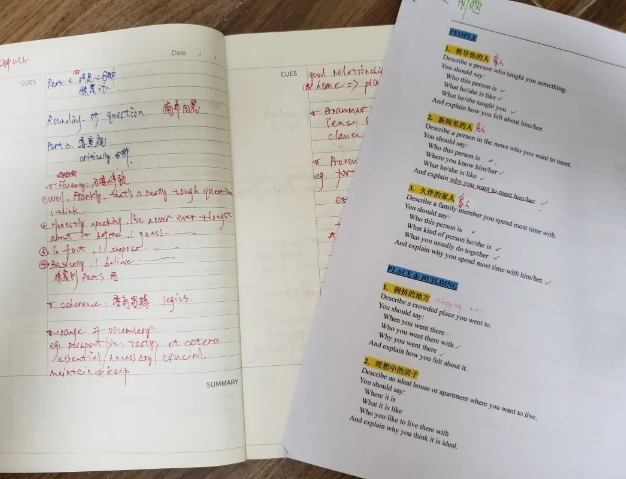 Date / /
CUES
Part 2
Rounding-off question
Part 3
critically
* Fluency
① well, frankly, that's a really tough question
I think
② Honestly speaking, I've never ever thought
about it before, I guess
③ In fact, I suppose
④ Basically, I believe
* coherence: logics.
* range of vocabulary
eg. perspective, tasty, et cetera
essential / necessary crucial
maintain keep
SUMMARY
CUES
good relationship
home => pla
* Grammar
Tense
clause
eg. for
PEOPLE
1. 教导你的人 家人
Describe a person who taught you something.
You should say:
Who this person is
What he/she is like
What he/she taught you
And explain how you felt about him/her.
2. 新闻里的人
Describe a person in the news who you want to meet.
You should say:
Who this person is
Where you know him/her
What he/she is like
And explain why you want to meet him/her.
3. 久伴的家人
Describe a family member you spend most time with.
You should say:
Who this person is
What kind of person he/she is
What you usually do together
And explain why you spend most time with him/her.
PLACE & BUILDING
1. 拥挤的地方
Describe a crowded place you went to.
You should say:
When you went there
Who you went there with
Why you went there
And explain how you felt about it.
2. 理想中的房子
Describe an ideal house or apartment where you want to live.
You should say:
Where it is
What it is like
Who you like to live there with
And explain why you think it is ideal.